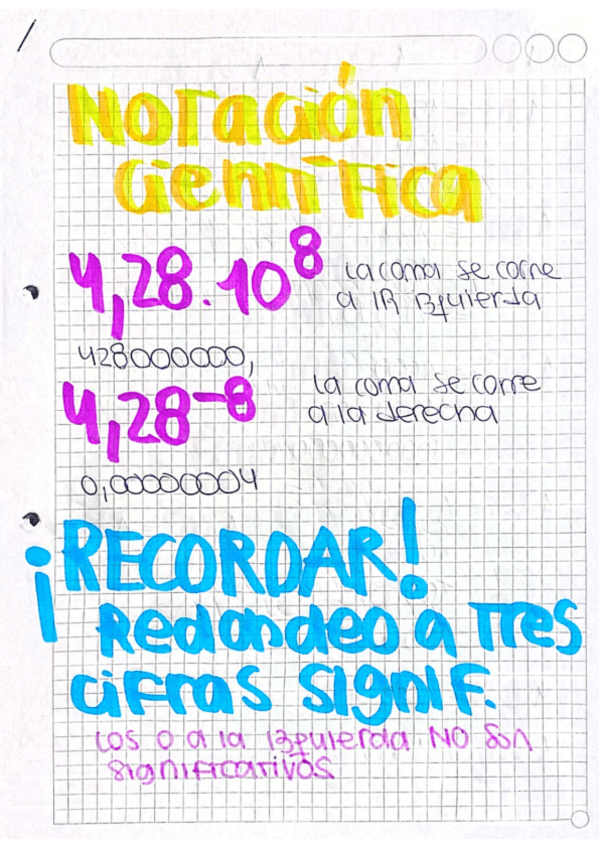 Notación
Científica
4,28.10⁸ la coma se corre
a la izquierda
428000000,
4,28⁻⁸ la coma se corre
a la derecha
0,00000004
¡RECORDAR!
Redondeo a Tres
cifras signif.
Los 0 a la izquierda NO son
significativos